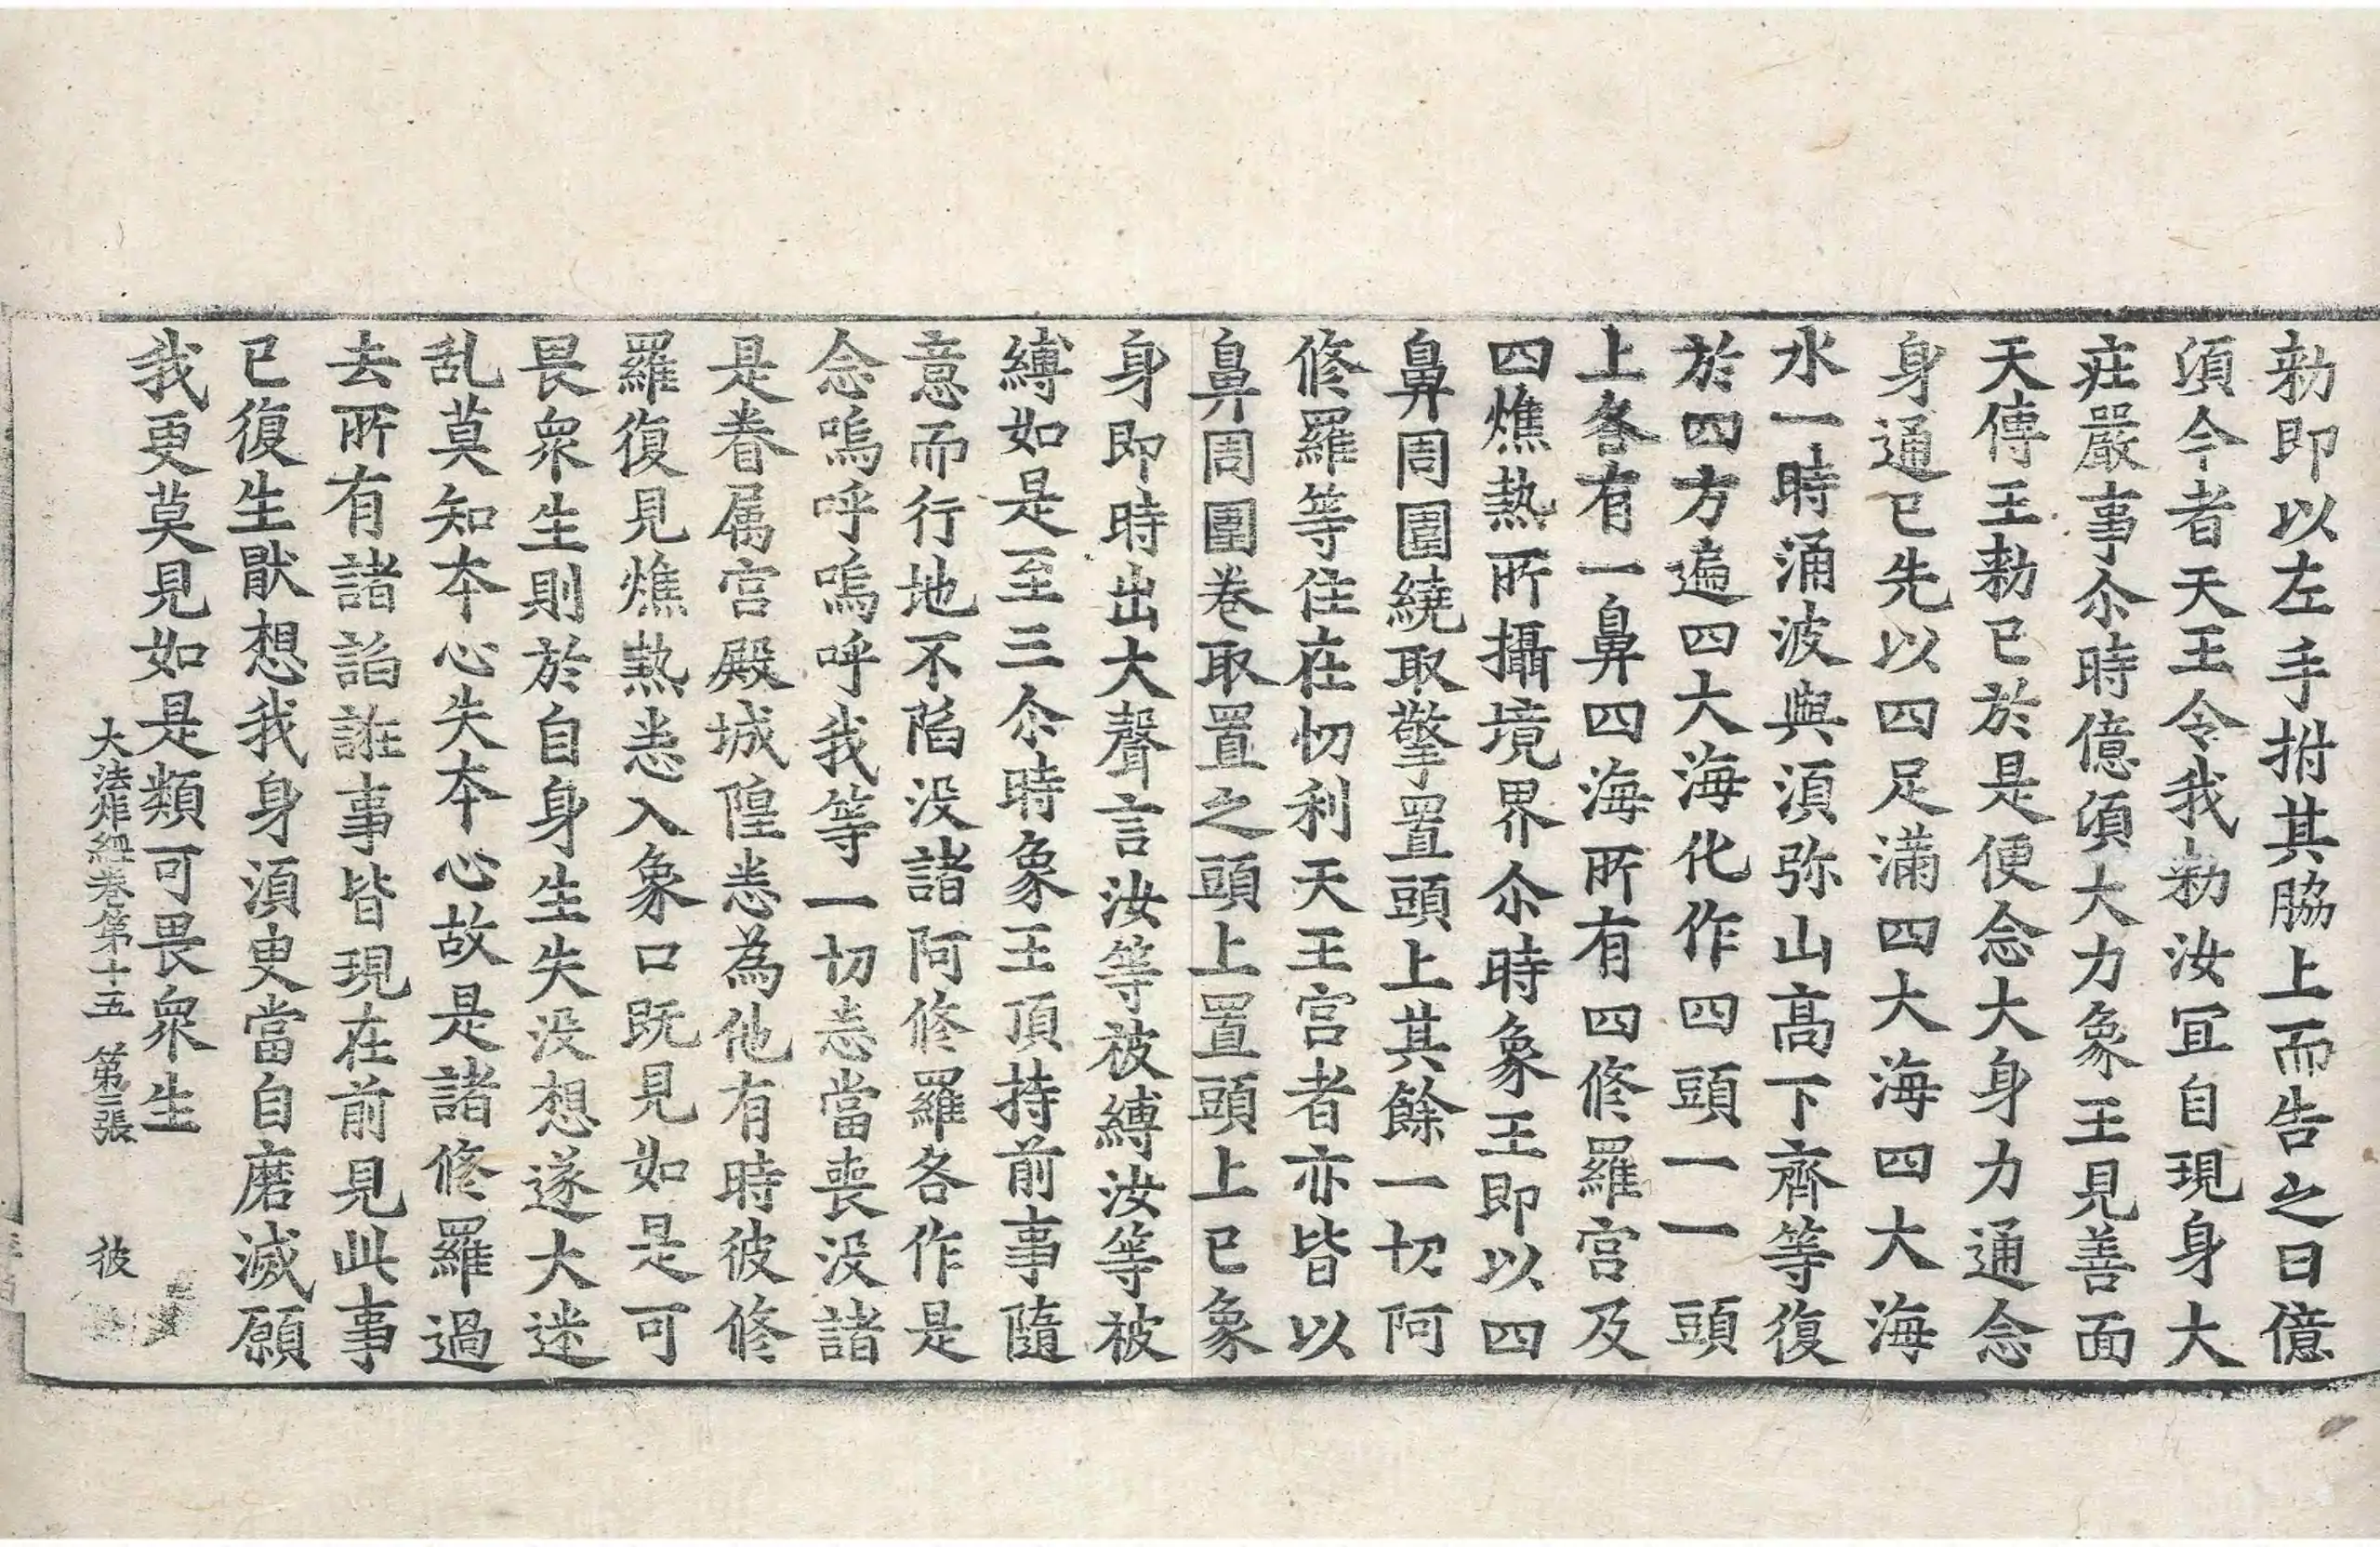 勑即以左手拊其脇上而告之曰億
湏今者天王令我勑汝冝自現身大
庄嚴事尒時億湏大力象王見善面
天傳王勑已於是便念大身力通念
身通已先以四足滿四大海四大海
水一時涌波與湏弥山高下齊等復
於四方遍四大海化作四頭一一頭
上各有一鼻四海所有四修羅宮及
四燋熱所攝境界尒時象王即以四
鼻周圍繞取擎置頭上其餘一切阿
修羅等住在忉利天王宮者亦皆以
鼻周圍卷取置之頭上置頭上已象
身即時出大聲言汝等被縛汝等被
縛如是至三尒時象王頂持前事隨
意而行地不陷没諸阿修羅各作是
念嗚呼嗚呼我等一切悉當喪没諸
是眷属宮殿城隍悉為他有時彼修
羅復見燋熱悉入象口既見如是可
畏衆生則於自身生失没想遂大迷
乱莫知本心失本心故是諸修羅過
去所有諸諂誑事皆現在前見此事
已復生厭想我身湏臾當自磨滅願
我更莫見如是類可畏衆生
大法炬經卷第十五 第三張 彼